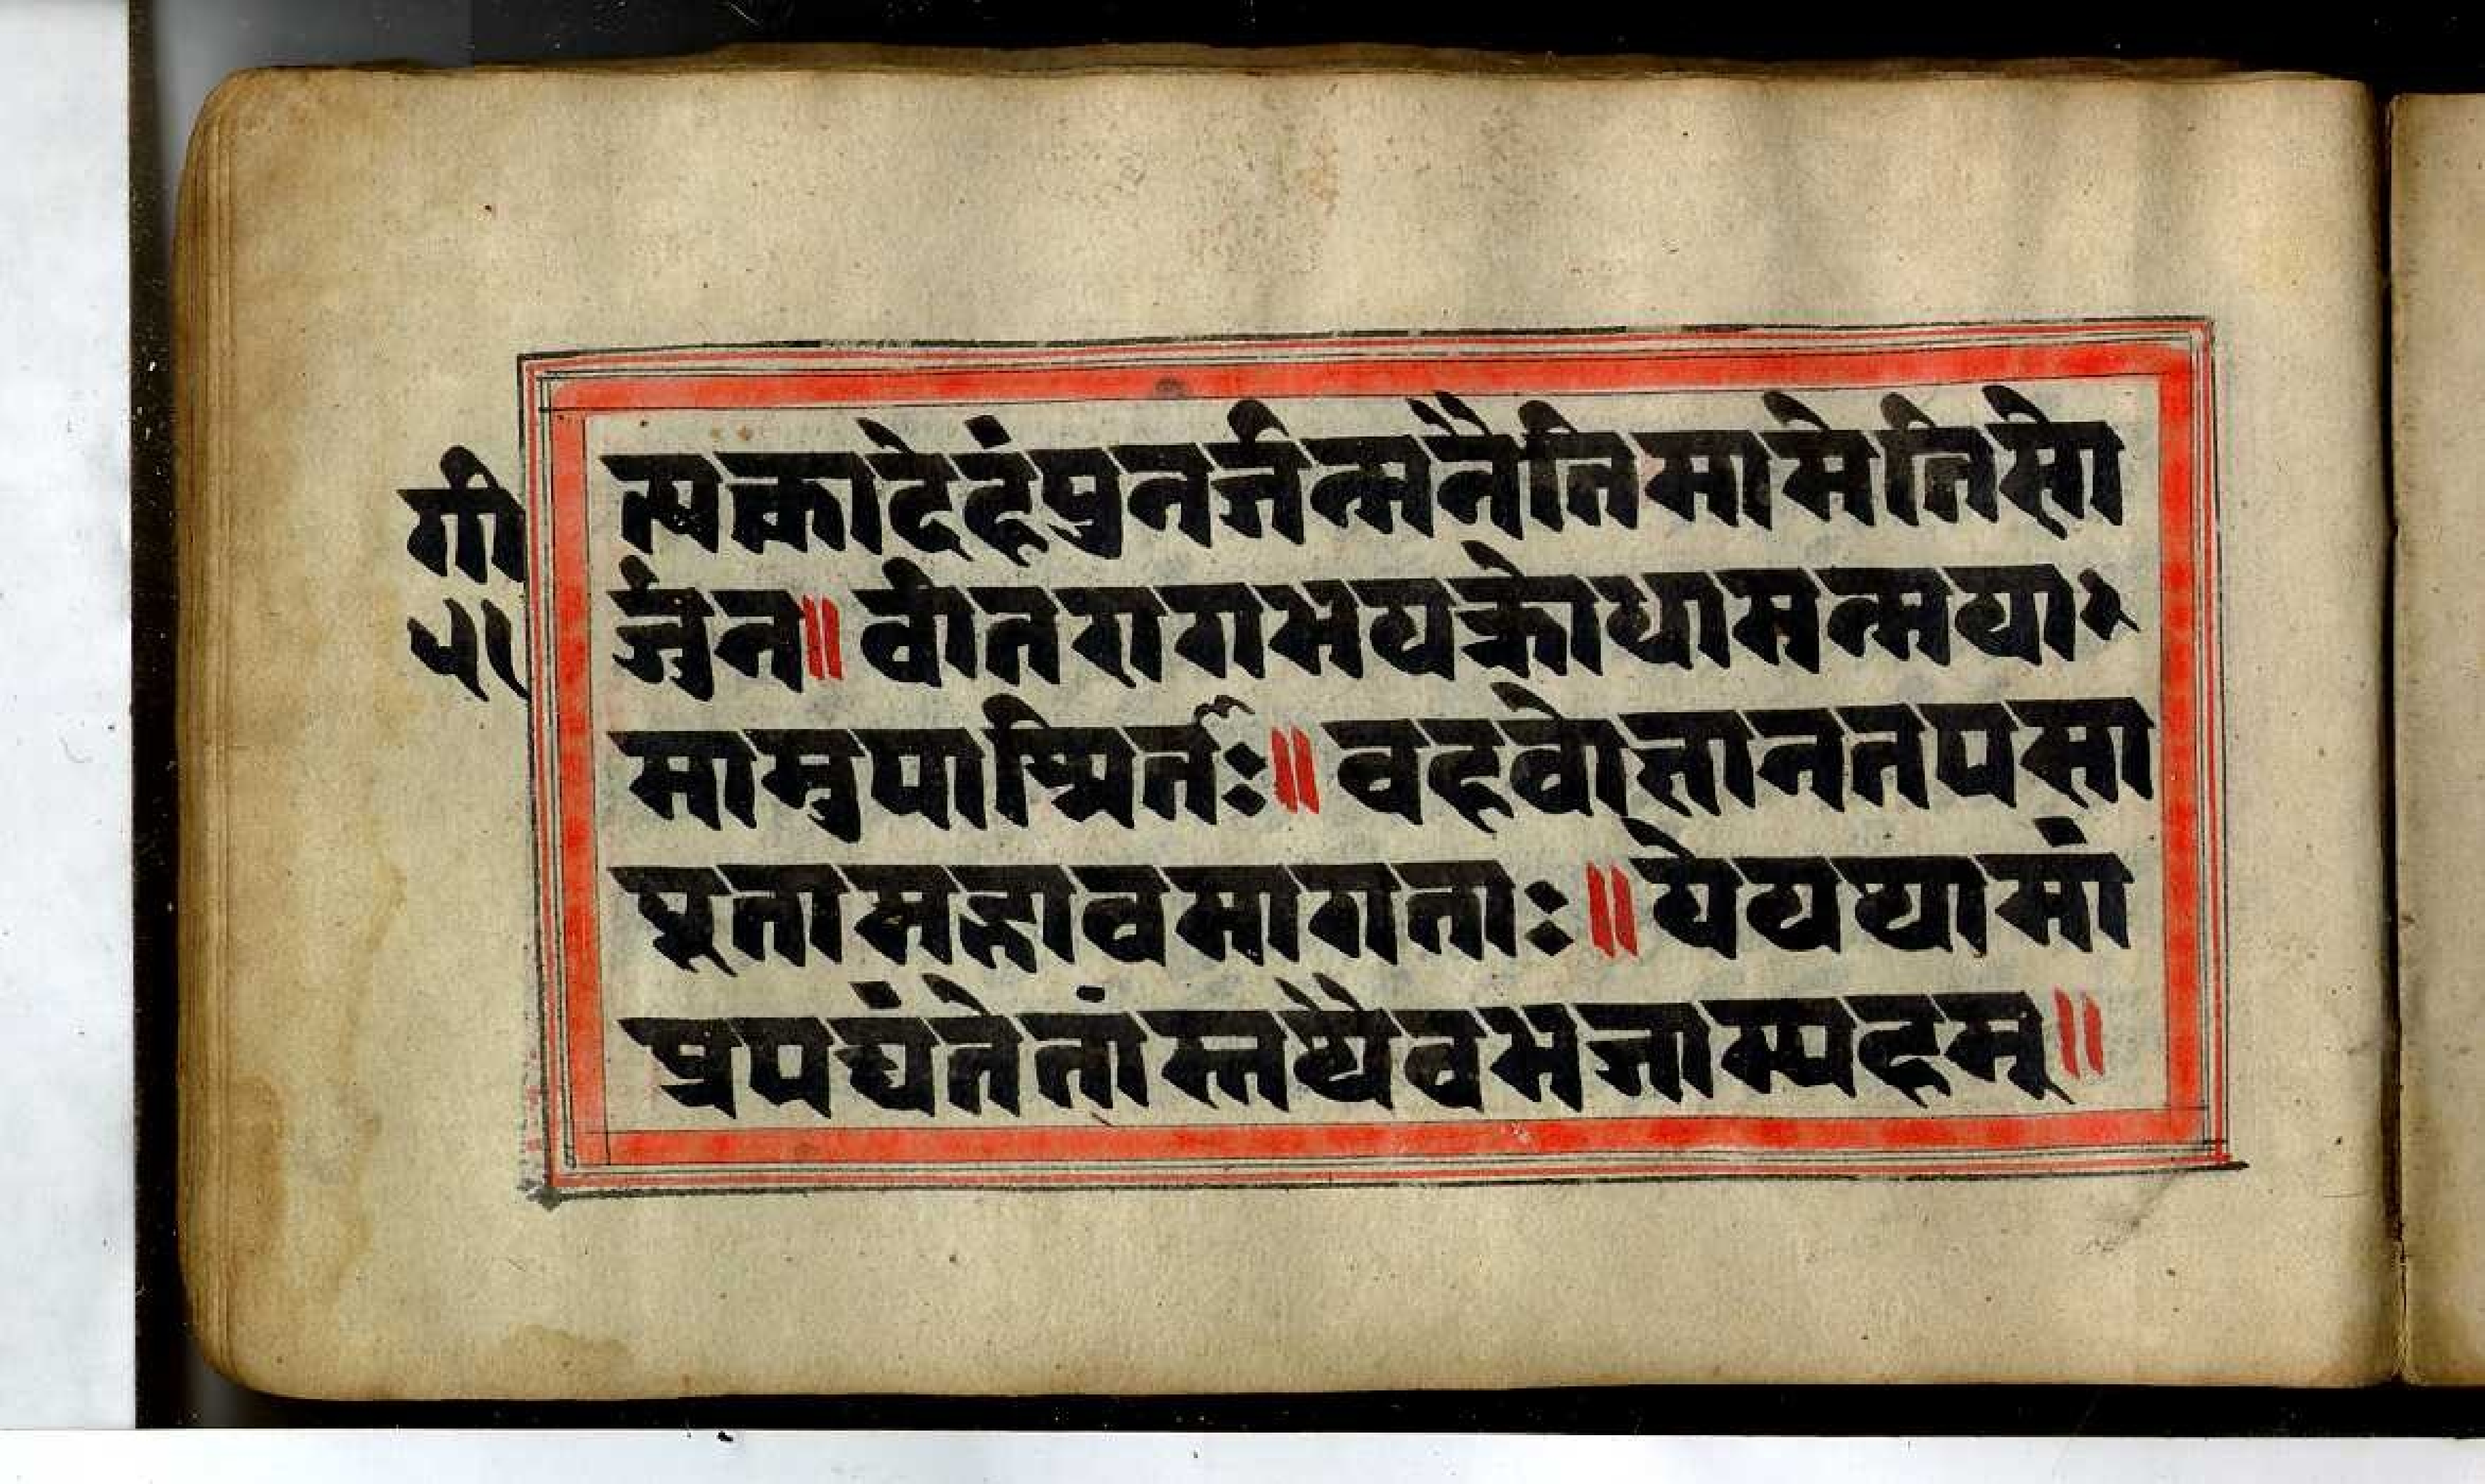 गी
५१
त्यक्तादेहंपुनर्जन्मनैतिमामेतिसो
र्जुन॥वीतरागभयक्रोधामन्मया
मामुपाश्रितः॥वहवोज्ञानतपसा
पूतामद्भावमागताः॥येयथामां
प्रपद्यंतेतांस्तथैवभजाम्यहम्॥